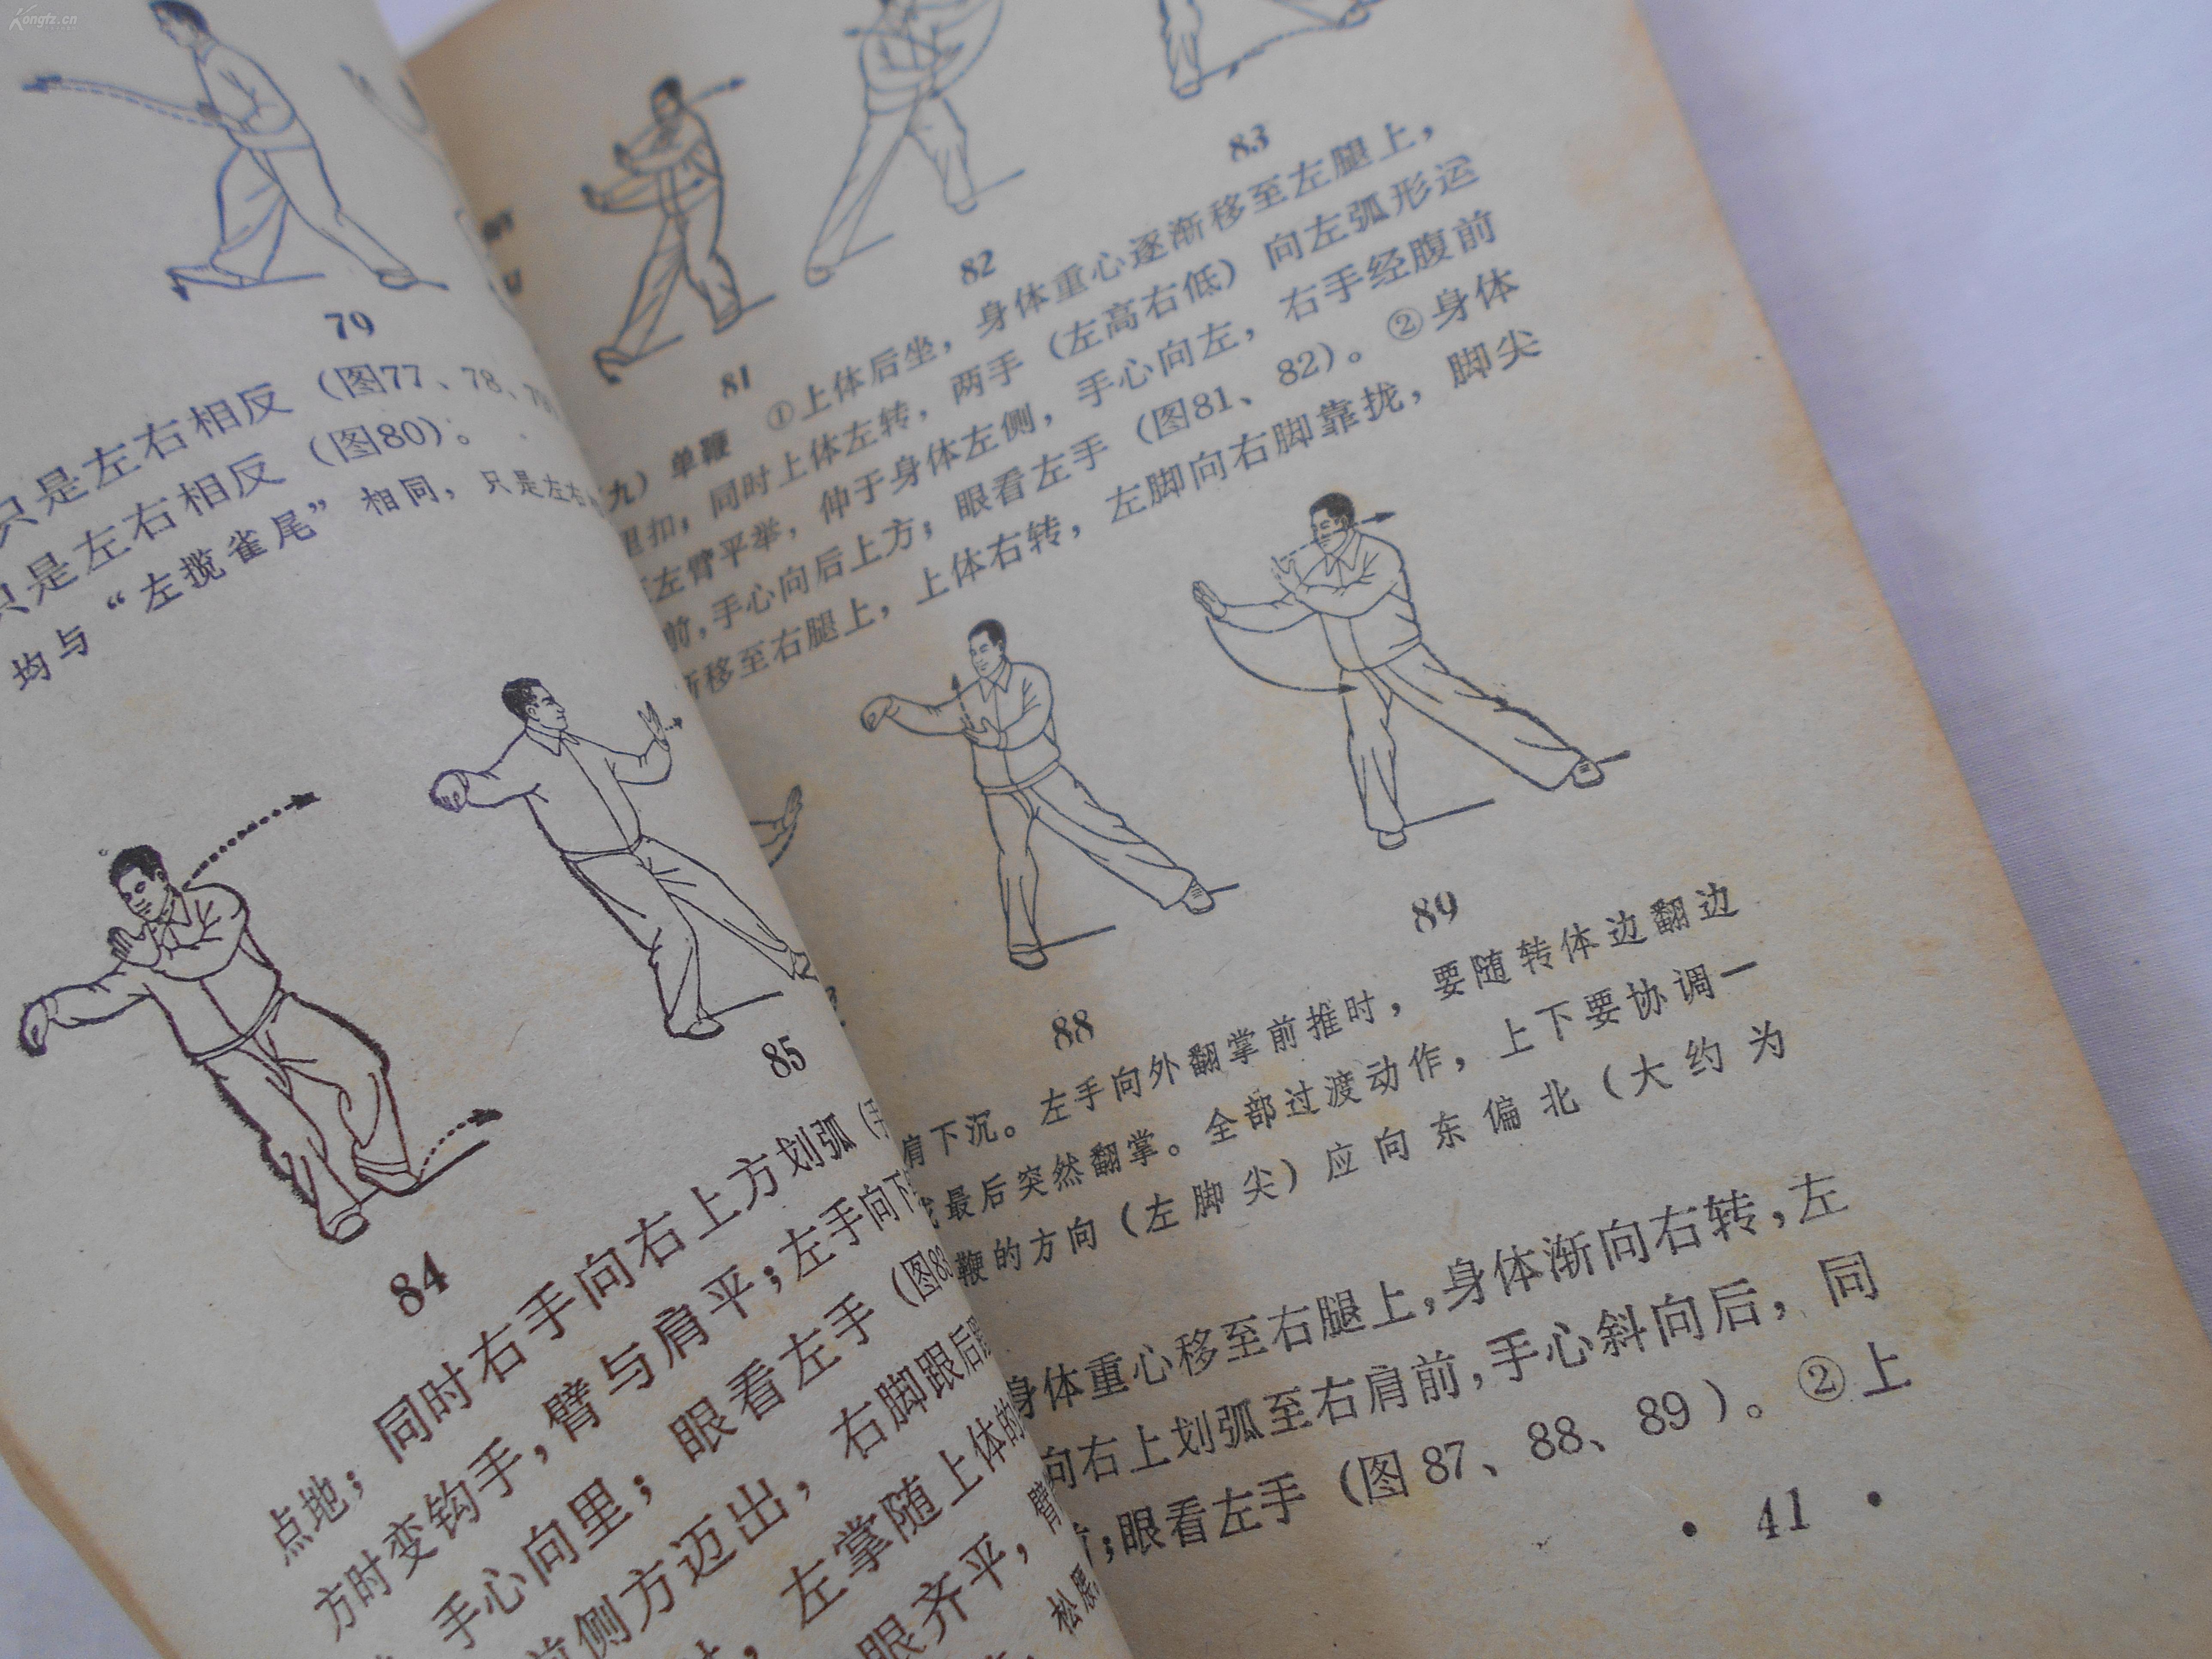 Kongfz.cn
79
只是左右相反（图77、78、79）
只是左右相反（图80）。
均与“左揽雀尾”相同，只是左右
84
85
点地；同时右手向右上方划弧（手
方时变钩手，臂与肩平；左手向下
手心向里；眼看左手（图83
前侧方迈出，右脚跟后蹬
左掌随上体的
眼齐平，臂
松展
81
82
83
九）单鞭 ①上体后坐，身体重心逐渐移至左腿上，
里扣；同时上体左转，两手（左高右低）向左弧形运
左臂平举，伸于身体左侧，手心向左，右手经腹前
前，手心向后上方；眼看左手（图81、82）。②身体
渐移至右腿上，上体右转，左脚向右脚靠拢，脚尖
88
89
肩下沉。左手向外翻掌前推时，要随转体边翻边
最后突然翻掌。全部过渡动作，上下要协调一
鞭的方向（左脚尖）应向东偏北（大约为
身体重心移至右腿上，身体渐向右转，左
向右上划弧至右肩前，手心斜向后，同
前；眼看左手（图87、88、89）。②上
• 41 •